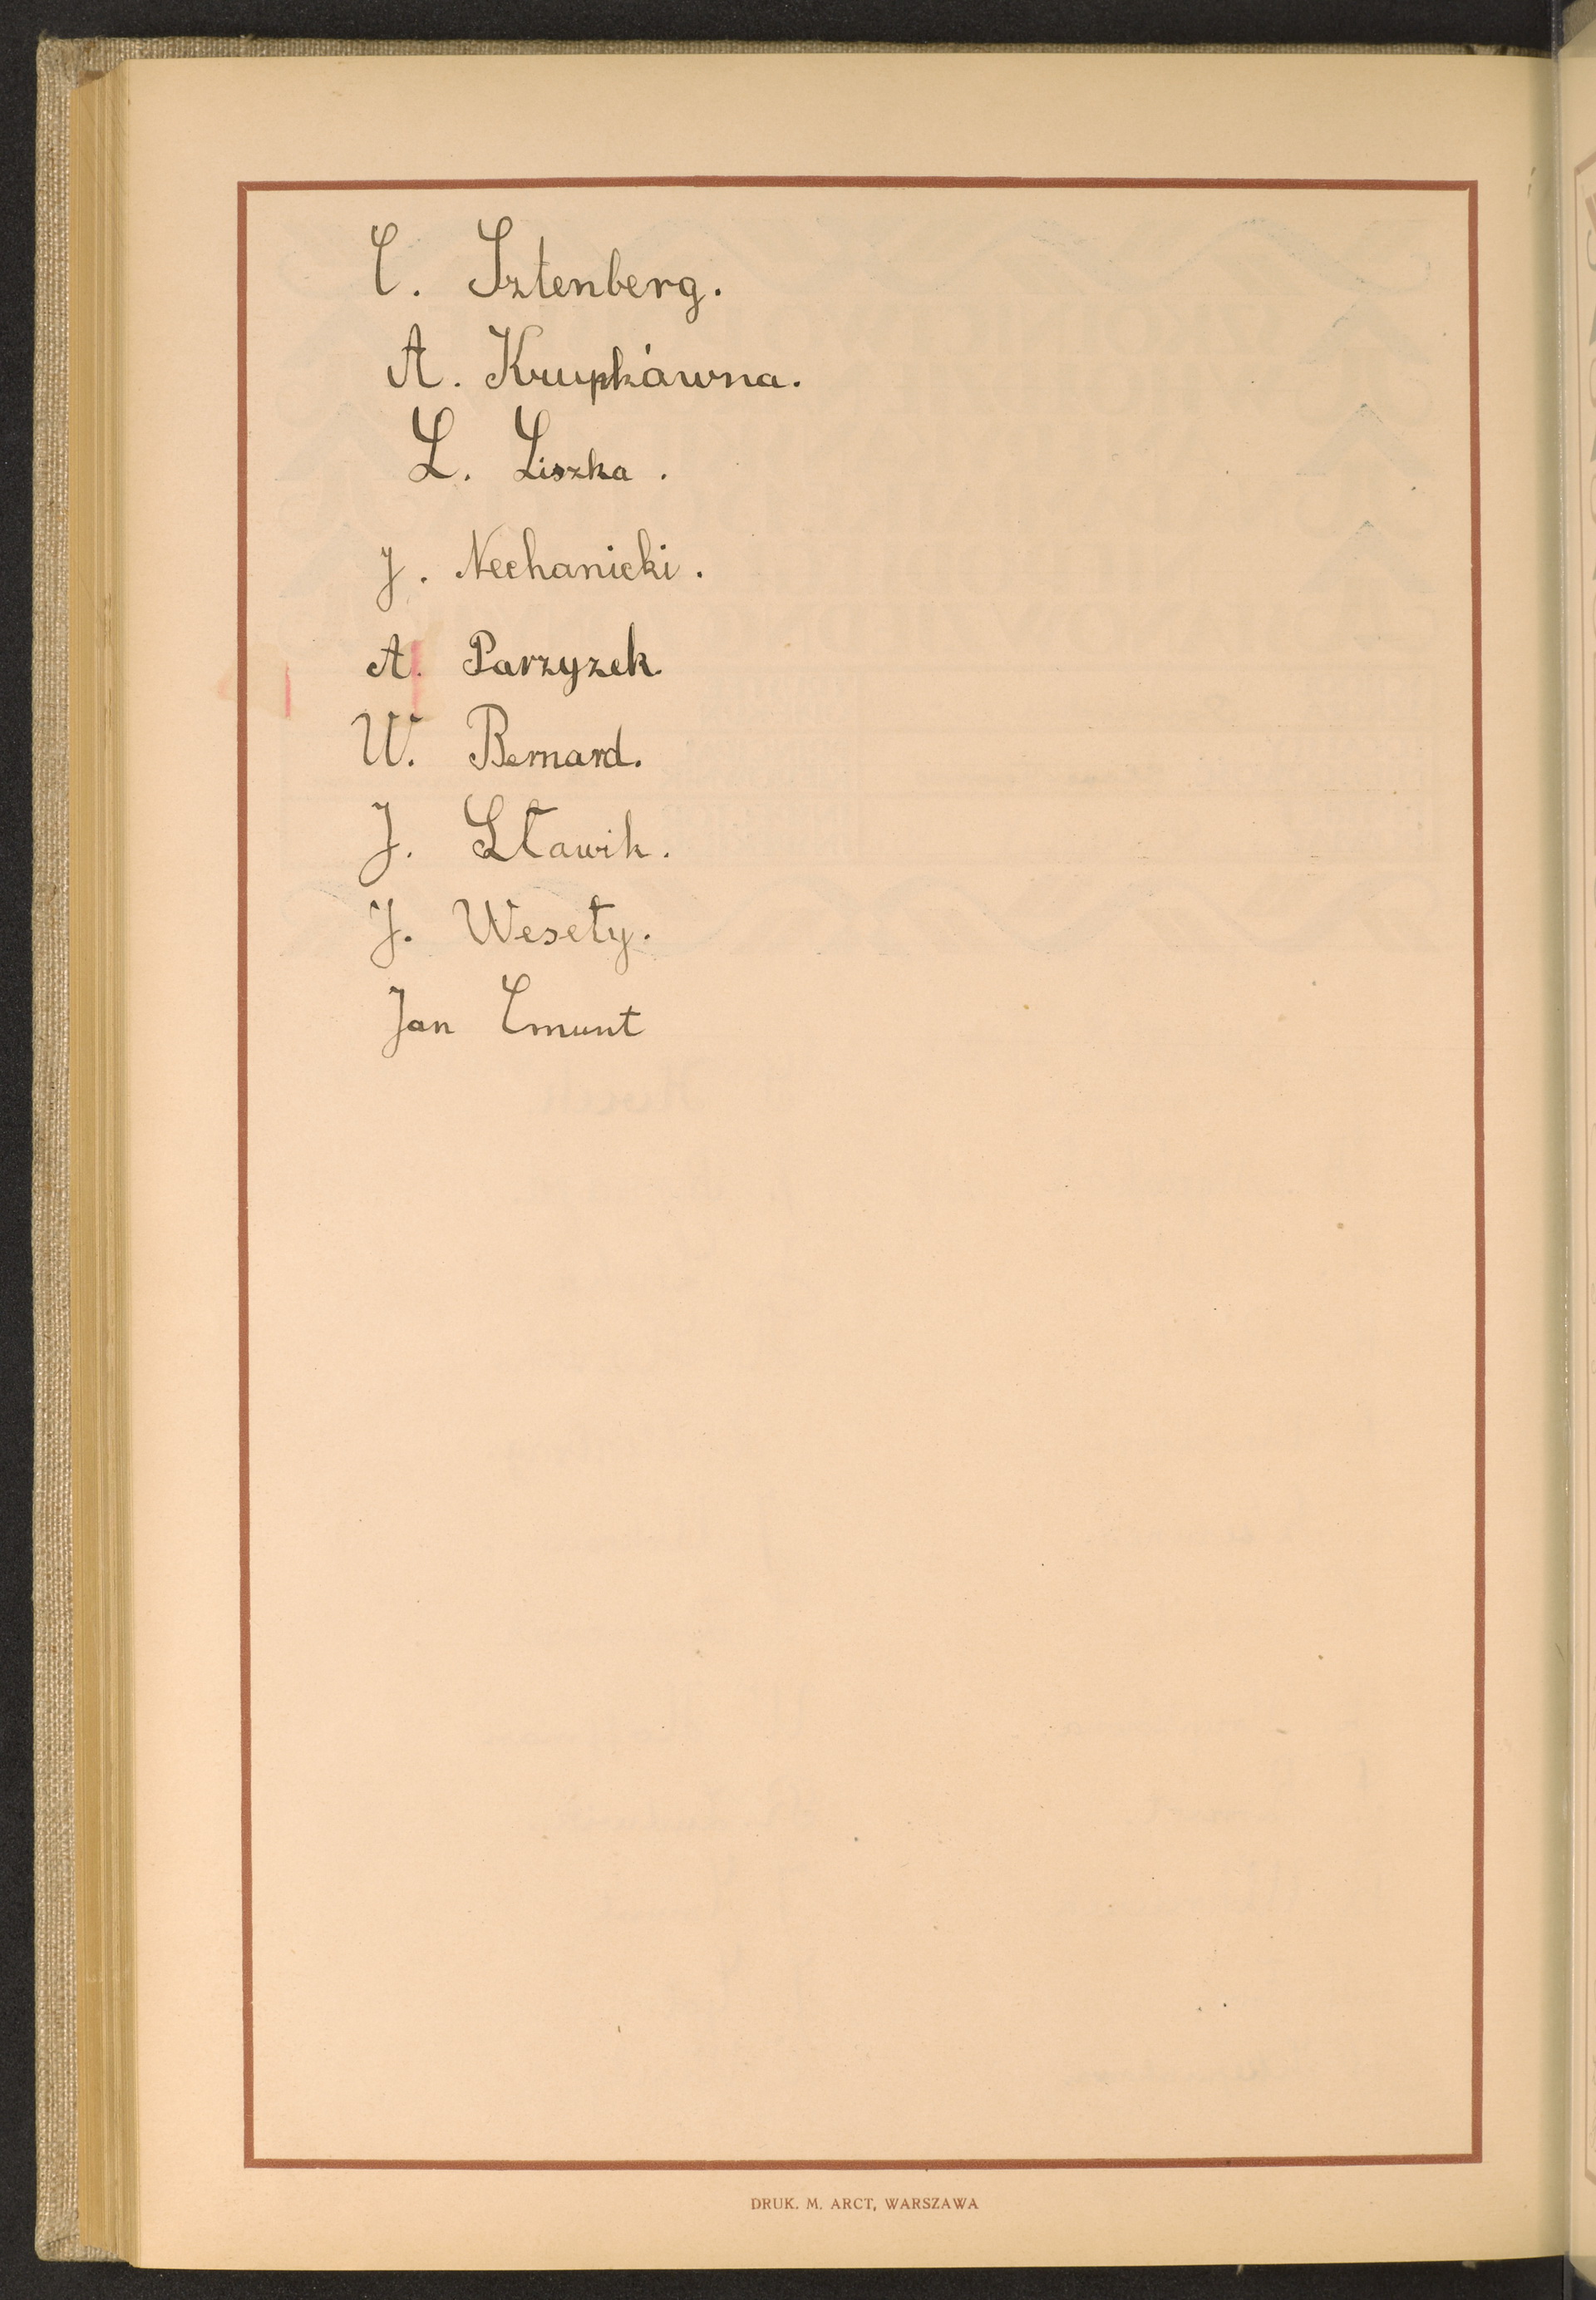 C. Sztenberg.
A. Krupkówna.
L. Liszka.
J. Nechanicki.
A. Parzyzek.
W. Bernard.
J. Sławik.
J. Weseły.
Jan Cmunt
DRUK. M. ARCT, WARSZAWA